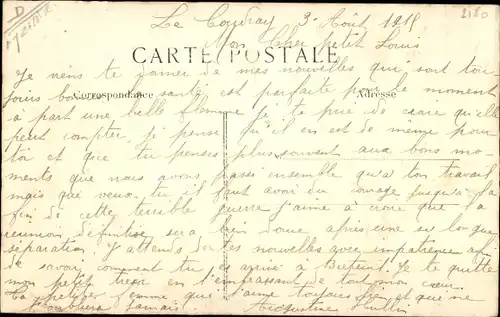 Le Coudray 3 Août 1918
2180
Mon Cher petit Louis
CARTE POSTALE
Je viens te donner de mes nouvelles qui sont tou
jours bonnes santé est parfaite pour le moment
Correspondance
Adresse
à part une belle flemme je te prie de croire qu'elle
peut compter je pense qu'il en est de même pour
toi et que tu penses plus souvent aux bons mo
ments que nous avons passé ensemble qu'à ton travail
mais que veux-tu il faut avoir du courage jusqu'à la
fin de cette terrible guerre j'aime à croire que la
réunion définitive sera bien douce après une si longue
séparation. J'attends de tes nouvelles avec impatience afin
de savoir comment tu es arrivé à Je te quitte
mon petit en t'embrassant de tout mon cœur
Ta petite femme qui t'aime toujours et que ne
t'oubliera jamais.